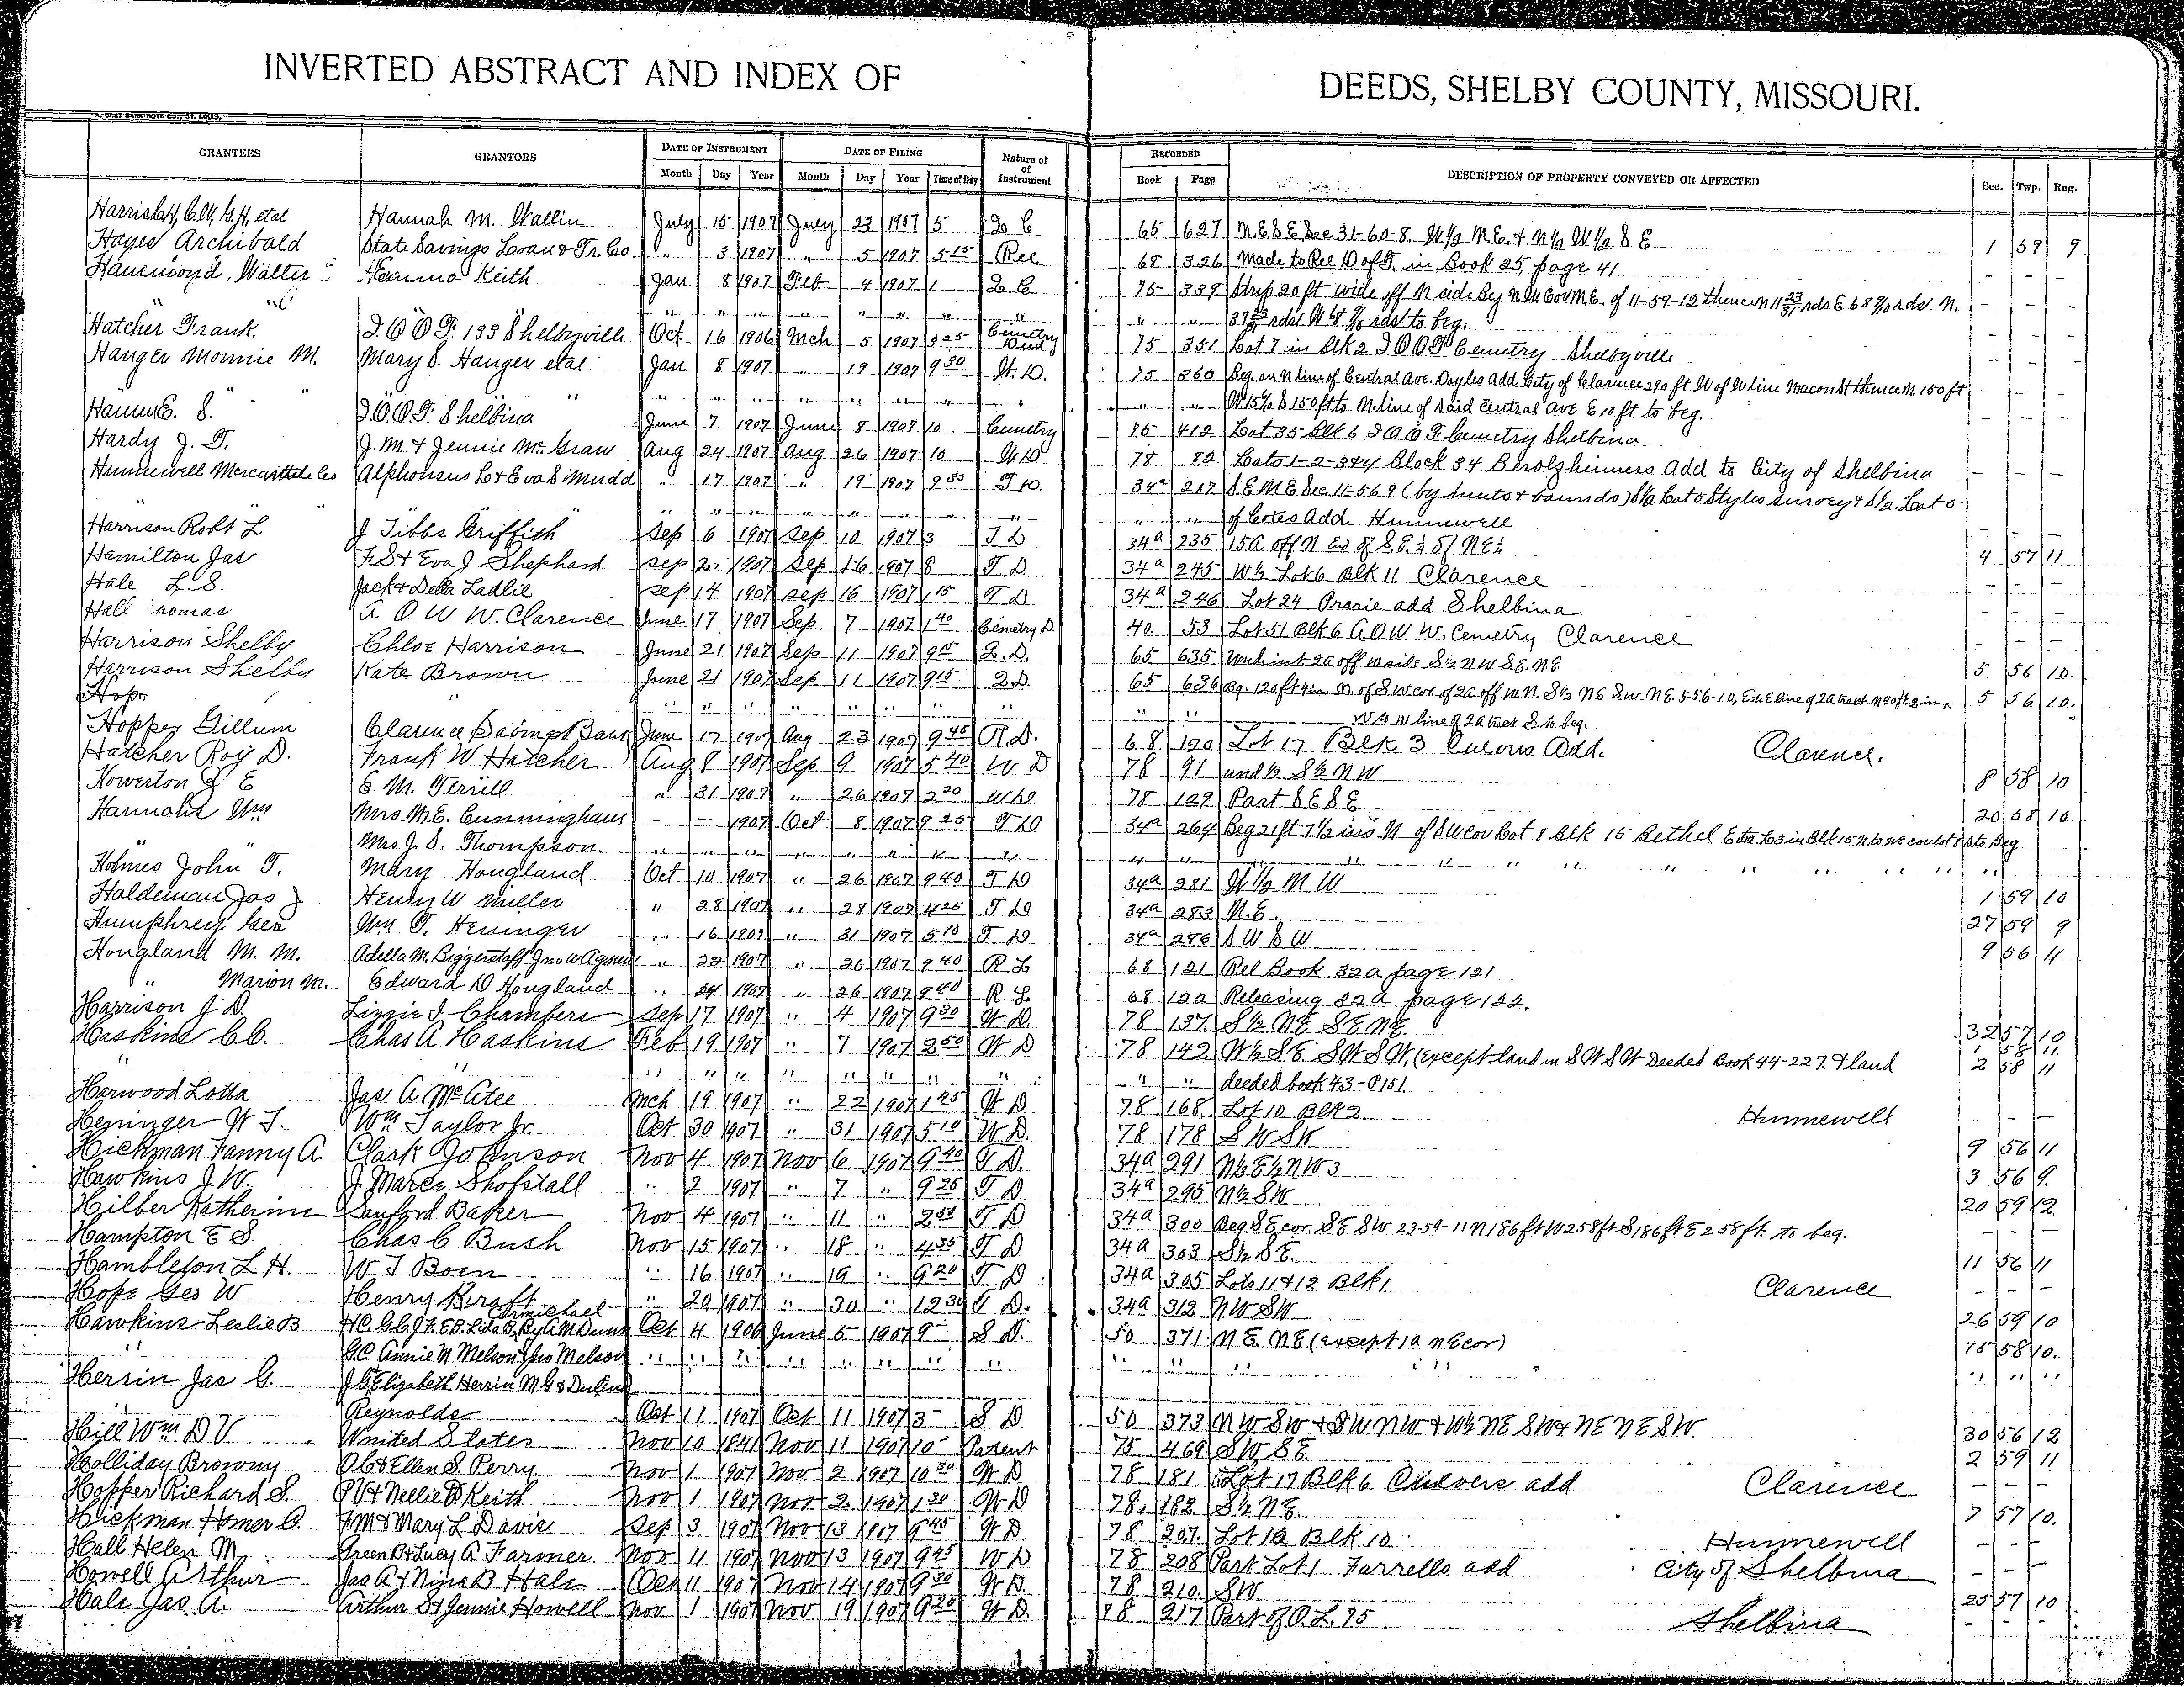 INVERTED ABSTRACT AND INDEX OF DEEDS, SHELBY COUNTY, MISSOURI.
GRANTEES GRANTORS DATE OF INSTRUMENT DATE OF FILING Nature of Instrument RECORDED DESCRIPTION OF PROPERTY CONVEYED OR AFFECTED Sec. Twp. Rng.
Month Day Year Month Day Year Time of Day Book Page
Hannah M. Wallin July 15 1907 July 23 1907 5 Q C 65 627 N.E S E Sec 31-60-8. W½ N.E. & N½ W½ S E 1 59 9
Hayes Archibald State Savings Loan & Tr. Co. " 3 1907 " 5 1907 5 15 Rel 68 326 Made to Rel D of T. in Book 25, page 41 - - -
Hammond, Walter Keith Jan 8 1907 Feb 4 1907 1 Q C 75 339 Strip 20 ft wide off N side - - -
" " " " " " " " " " " rds to beg.
Hatcher Frank. I.O.O.F. 133 Shelbyville Oct 16 1906 Mch 5 1907 9 25 Cemetry Deed 75 351 Lot 7 in Blk 2 I O O F Cemetry Shelbyville - - -
Hanger Monnie M. Mary S. Hanger etal Jan 8 1907 " 19 1907 9 30 W. D. 75 360 Beg. on N line of Central Ave. Doyles Add. City of Clarence 290 ft W of W line Macon St thence N. 150 ft - - -
" " " " " " " " " " " " S 150 ft to N. line of said Central Ave E 10 ft to beg.
S. I.O.O.F. Shelbina June 7 1907 June 8 1907 10 Cemetry 75 412 Lot 35 Blk 6 I O O F Cemetry Shelbina - - -
Hardy J. T. J. M. & Jennie McGraw Aug 24 1907 Aug 26 1907 10 W D 78 82 Lots 1-2-3&4 Block 34 Berolzheimers Add to City of Shelbina - - -
Hunnewell Mercantile Co Alphonsus L & Eva S Mudd " 17 1907 " 19 1907 9 T D. 34a 217 S E N E Sec 11-56 9 (by meets & bounds) S½ Lot 5 Styles survey & S½ Lot 5
" " " " " " " " " " " of Cotes Add Hunnewell
Harrison Robt L. J Tibbs Griffith Sep 6 1907 Sep 10 1907 3 T D 34a 235 15A off N End of S.E.¼ of NE¼ 4 57 11
Hamilton Jas. F. S & Eva J Shephard Sep 1907 Sep 16 1907 8 T. D 34a 245 W½ Lot 6 Blk 11 Clarence - - -
Hale L. S. Jack & Della Ladlie Sep 14 1907 Sep 16 1907 1 15 T D 34a 246 Lot 24 Prarie add Shelbina - - -
Hall Thomas A O U W W. Clarence June 17 1907 Sep 7 1907 1 40 Cemetry D. 40 53 Lot 51 Blk 6 A O U W. Cemetry Clarence - - -
Harrison Shelby Chloe Harrison June 21 1907 Sep 11 1907 9 15 Q. D. 65 635 Und. int 2a off w side S½ N W S.E. N.E 5 56 10.
Harrison Shelby Kate Brown June 21 1907 Sep 11 1907 9 15 Q D. 65 636 Bg. 120 ft 4 in N. of S W cor. of 2a off W.N. S½ NE S.W. N.E. 5-56-10, 5 56 10.
" " " " " " " " " " W to W line of 2 A tract S to beg.
Hopper Gillum Clarence Savings Bank June 17 1907 Aug 23 1907 9 45 R. D. 68 120 Lot 17 Blk 3 Culvers Add. Clarence.
Hatcher Roy D. Frank W Hatcher Aug 8 1907 Sep 9 1907 5 40 W D 78 91 und ½ S½ N W 8 58 10
Howerton E E. M. Terrill " 31 1907 " 26 1907 2 20 W D 78 129 Part S E S E 20 58 10
Hannah Wm Mrs M.E. Cunningham - - 1907 Oct 8 1907 9 25 T D 34a 264 Beg 21 ft 7½ ins N of S W cor Lot 8 Blk 15 Bethel
" " Mrs J. S. Thompson " " " " " " " " "
Holmes John T. Mary Hougland Oct 10 1907 " 26 1907 9 40 T D 34a 281 W½ N W 1 59 10
Haldeman Jas J Henry W Miller " 28 1907 " 28 1907 4 25 T D 34a 283 N.E. 27 59 9
Humphrey Geo Wm T. Heninger " 16 1907 " 31 1907 5 10 T D 34a 286 S W S W 9 56 11
Hougland M. M. Adella M. Biggerstaff Jno W Agnew " 22 1907 " 26 1907 9 40 R L 68 121 Rel Book 32a page 121
" Marion M. Edward D Hougland " 24 1907 " 26 1907 9 40 R L. 68 122 Releasing 32a page 122.
Harrison J D. Lizzie J. Chambers Sep 17 1907 " 4 1907 9 30 W D. 78 137 S½ N E S.E. N.E. 32 57 10
Haskins C C. Chas A Haskins Feb 19 1907 " 7 1907 2 50 W D 78 142 W½ S E. S W S W, (except land in S W S W Deeded Book 44-227. & land 2 58 11
" " " " " " " " " " " deeded book 43-P 151.
Harwood Lotta Jas A McAtee Mch 19 1907 " 22 1907 1 45 W D 78 168 Lot 10 Blk 2 Hunnewell - - -
Heninger W T. Wm Taylor Jr. Oct 30 1907 " 31 1907 5 10 W D. 78 178 S W S W 9 56 11
Hickman Fanny A. Clark Johnson Nov 4 1907 Nov 6 1907 9 40 T D. 34a 291 N½ E½ N W 3 3 56 9.
Hawkins J. W. J. Marce Shofstall " 2 1907 " 7 " 9 25 T D 34a 295 N½ S W 20 59 12
Hilber Katherine Sanford Baker Nov 4 1907 " 11 " 2 50 T D 34a 300 Beg S E cor. S E S W 23-59-11 N 186 ft W 258 ft S 186 ft E 258 ft. to beg.
Hampton E S. Chas C Bush Nov 15 1907 " 18 " 4 35 T D 34a 303 S½ S E. 11 56 11
Hambleton L H. W T Boen " 16 1907 " 19 " 9 20 T D 34a 305 Lots 11 & 12 Blk 1 Clarence - - -
Hope Geo W Henry Kraft " 20 1907 " 30 " 12 30 T D. 34a 312 N W S W 26 59 10
Hawkins Leslie B Oct 4 1906 June 5 1907 9 S D. 50 371 N E. N E (except 1a N E cor) 15 58 10.
" G.C. Annie M Melson & Jno Melson " " " " " " " " " " " " "
Herrin Jas G. J. C. Elizabeth Herrin
Reynolds Oct 11 1907 Oct 11 1907 3 S D 50 373 N W S W & S W N W & W½ N E S W & N E N E S W. 30 56 12
Hill Wm D V United States Nov 10 1841 Nov 11 1907 10 Patent 75 469 S W S E. 2 59 11
Holliday Browny O C & Ellen S. Perry Nov 1 1907 Nov 2 1907 10 30 W D 78 181 Lot 17 Blk 6 Culvers add Clarence - - -
Hopper Richard S. P V & Nellie D Keith Nov 1 1907 Nov 2 1907 1 30 W D 78 182 S½ N E. 7 57 10.
Hickman Homer C. F. M & Mary L Davis Sep 3 1907 Nov 13 1907 9 45 W D. 78 207 Lot 12 Blk 10 Hunnewell - - -
Hall Helen M Green B & Lucy A Farmer Nov 11 1907 Nov 13 1907 9 45 W D 78 208 Part Lot 1 Farrells add City of Shelbina - - -
Howell Arthur Jas A & Nina B Hale Oct 11 1907 Nov 14 1907 9 30 W D. 78 210 S W 25 57 10
Hale Jas. A. Arthur S & Jennie Howell Nov 1 1907 Nov 19 1907 9 20 W D. 78 217 Part of O. L. 75 Shelbina - -